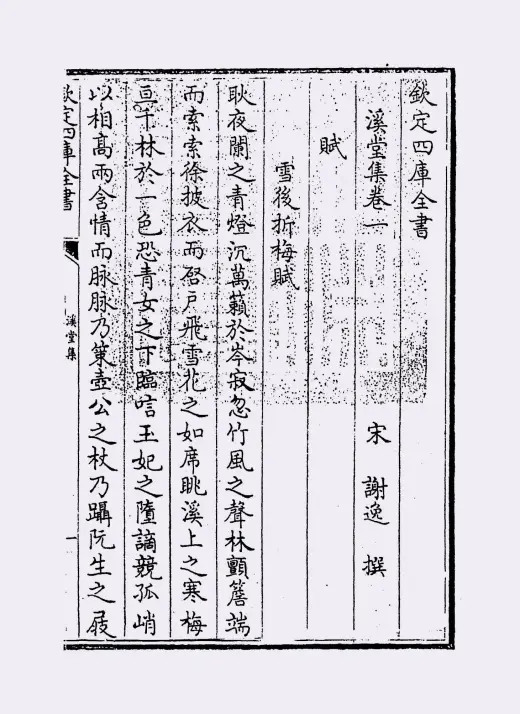 欽定四庫全書
溪堂集卷一
宋 謝逸 撰
賦
雪後折梅賦
耿夜闌之青燈沉萬籟於岑寂忽竹風之聲林顫簷端
而索索徐披衣而啓戶飛雪花之如席眺溪上之寒梅
亘千林於一色恐青女之下臨唁玉妃之墮謫競孤峭
以相高兩含情而脉脉乃策壺公之杖乃躡阮生之屐
欽定四庫全書
溪堂集
一